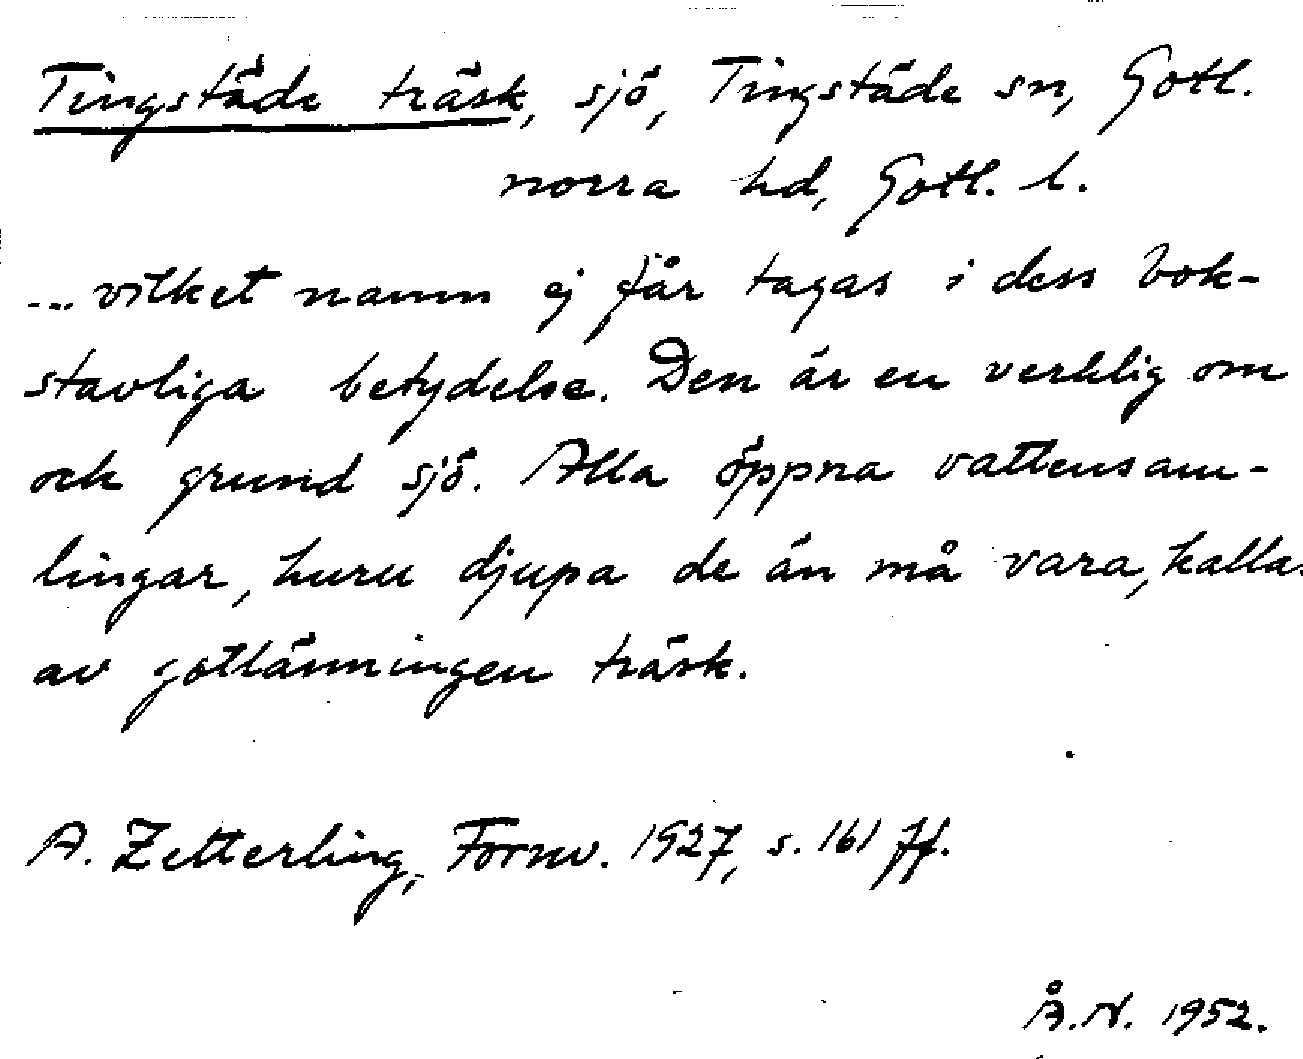 Tingstäde träsk, sjö, Tingstäde sn, Gotl.
norra hd, Gotl. l.
... vilket namn ej får tagas i dess bok-
stavliga betydelse. Den är en verklig om
ock grund sjö. Alla öppna vattensam-
lingar, huru djupa de än må vara, kallas
av gotlänningen träsk.
A. Zetterling, Fornv. 1927, s. 161 ff.
Å.N. 1952.